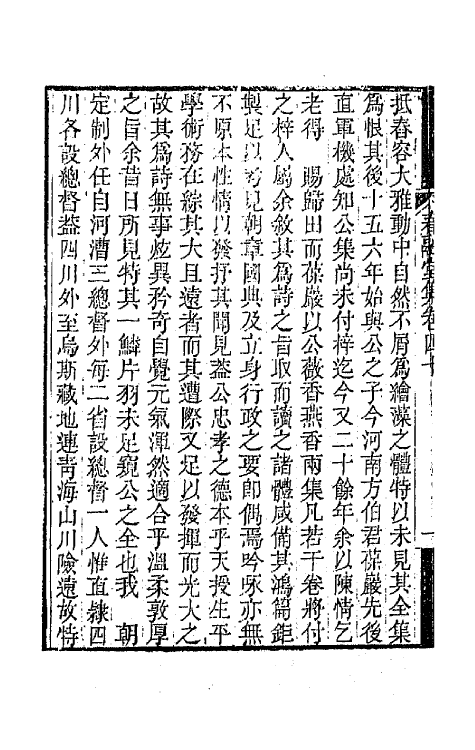 抵舂容大雅動中自然不屑爲繪藻之體特以未見其全集
爲恨其後十五六年始與公之子今河南方伯君葆巖先後
直軍機處知公集尚未付梓迄今又二十餘年余以陳情乞
老得　賜歸田而葆巖以公薇香燕香兩集凡若干卷將付
之梓人屬余敘其爲詩之旨取而讀之諸體咸備其鴻篇鉅
製足以考見朝章國典及立身行政之要卽偶焉吟咏亦無
不原本性情以發抒其聞見蓋公忠孝之德本乎天授生平
學術務在綜其大且遠者而其遭際又足以發揮而光大之
故其爲詩無事炫異矜奇自覺元氣渾然適合乎溫柔敦厚
之旨余昔日所見特其一鱗片羽未足窺公之全也我　朝
定制外任自河漕三總督外每二省設總督一人惟直隸四
川各設總督蓋四川外至烏斯藏地連靑海山川險遠故特
春融堂集卷四十